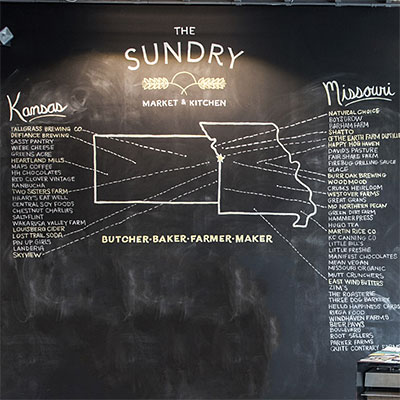 THE
SUNDRY
MARKET & KITCHEN
Kansas
TALLGRASS BREWING CO.
DEFIANCE BREWING
SASSY PANTRY
WE'RE CHEESE
GREENS ACRE
HEARTLAND MILLS
MAPS COFFEE
HH CHOCOLATES
RED CLOVER VINTAGE
KANBUCHA
TWO SISTERS FARM
HILARY'S EAT WELL
CENTRAL SOY FOODS
CHESTNUT CHARLIES
SALT FLINT
WAKARUSA VALLEY FARM
LOUISBURG CIDER
LOST TRAIL SODA
PIN UP GIRLS
LANDERIA
SKYVIEW
Missouri
NATURAL CHOICE
BOYS GROW
BARHAM FARM
SHATTO
OF THE EARTH FARM DISTILLE
HAPPY HOG HAVEN
DAVID'S PASTURE
FAIR SHARE FARM
FIREBUG GRILLING SAUCE
GLACÉ
BURR OAK BREWING
WOOD MOOD
CRUM'S HEIRLOOM
WESTOVER FARMS
GREAT GRANS
MO NORTHERN PECAN
GREEN DIRT FARM
HAMMER PRESS
HUGO TEA
MARTIN RICE CO
KC CANNING CO
LITTLE BILL'S
LITTLE FRESHIE
MANIFEST CHOCOLATES
MEAN VEGAN
MISSOURI ORGANIC
MUTT CRUNCHERS
EAST WIND BUTTERS
ZIM'S
THE ROASTERIE
THREE DOG BAKERY
HELLO HAPPINESS CARDS
RIEGA FOOD
WINDHAVEN FARMS
BEER PAWS
BOULEVARD
ROOT SELLERS
PARKER FARMS
QUITE CONTRARY FARMS
BUTCHER-BAKER-FARMER-MAKER